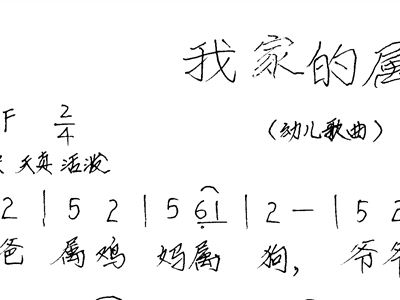 我家的属
F 2/4
（幼儿歌曲）
天真 活泼
2 | 5 2 | 5 61 | 2 — | 5 2
爸 属鸡 妈属 狗， 爷爷